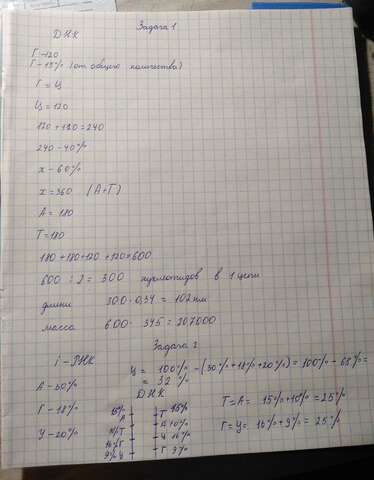 Задача 1
ДНК
Г-120
Г-15% (от общего количества)
Г=Ц
Ц=120
120+120=240
240-40%
х-60%
х=360 (А+Т)
А=180
Т=180
180+180+120+120=600
600:2=300 нуклеотидов в 1 цепи
длина 300·0,34=102нм
масса 600·345=207000
Задача 2
i-РНК
Ц=100%-(30%+18%+20%)=100%-68%=
=32%
А-30%
Г-18%
У-20%
ДНК
15% А Т 15%
10% Т А 10%
16% Г Ц 16%
9% Ц Г 9%
Т=А= 15%+10%=25%
Г=Ц= 16%+9%=25%